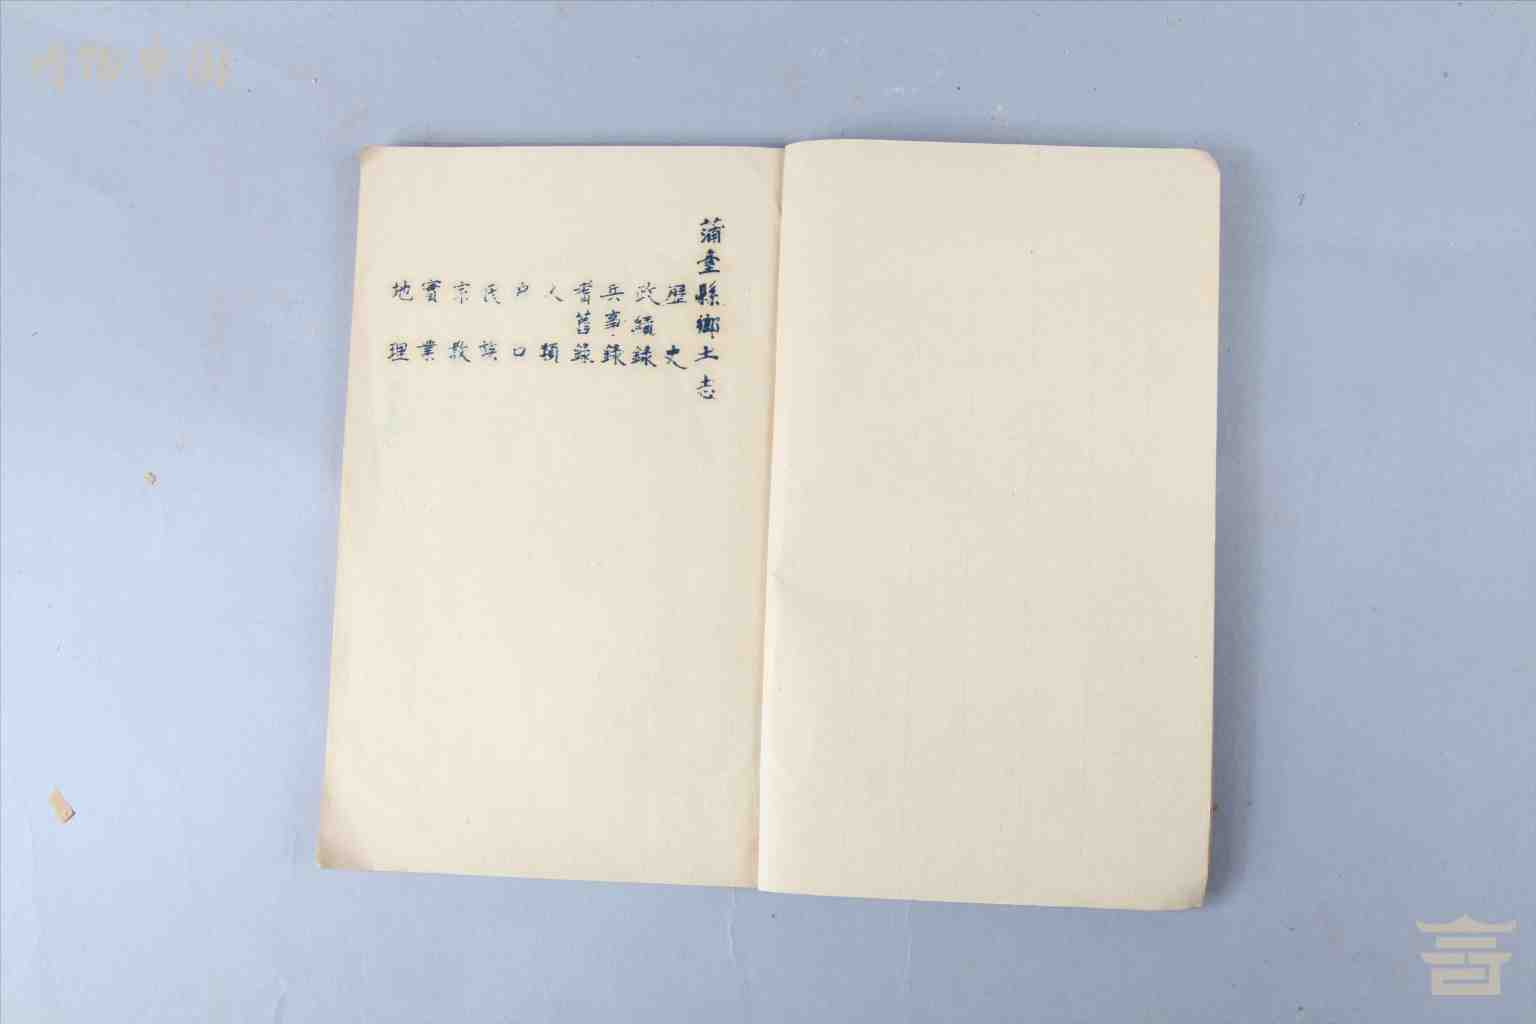 蒲臺縣鄉土志
歷史
政績錄
兵事錄
耆舊錄
人類
户口
氏族
宗教
實業
地理